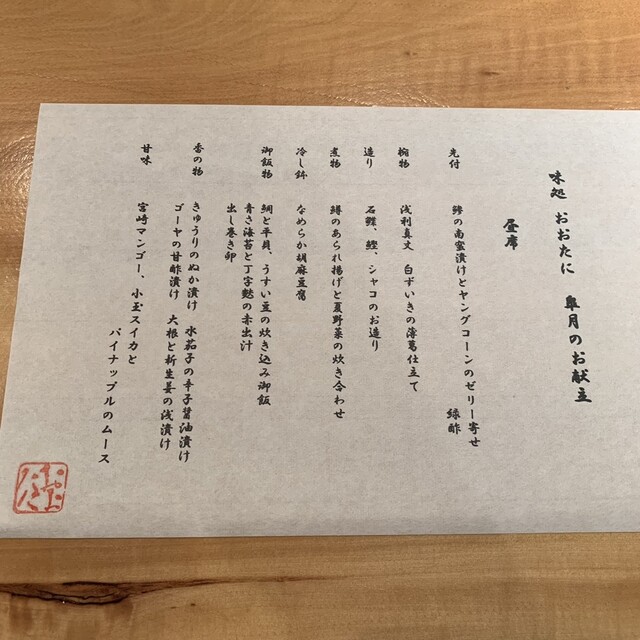 味処 おおたに 皐月のお献立
昼席
先付 鯵の南蛮漬けとヤングコーンのゼリー寄せ
緑酢
椀物 浅利真丈 白ずいきの薄葛仕立て
造り 石鰈、鰹、シャコのお造り
煮物 鱒のあられ揚げと夏野菜の炊き合わせ
冷し鉢 なめらか胡麻豆腐
御飯物 鯛と平貝、うすい豆の炊き込み御飯
青さ海苔と丁字麩の赤出汁
出し巻き卵
香の物 きゅうりのぬか漬け 水茄子の辛子醤油漬け
ゴーヤの甘酢漬け 大根と新生姜の浅漬け
甘味 宮崎マンゴー、小玉スイカと
パイナップルのムース